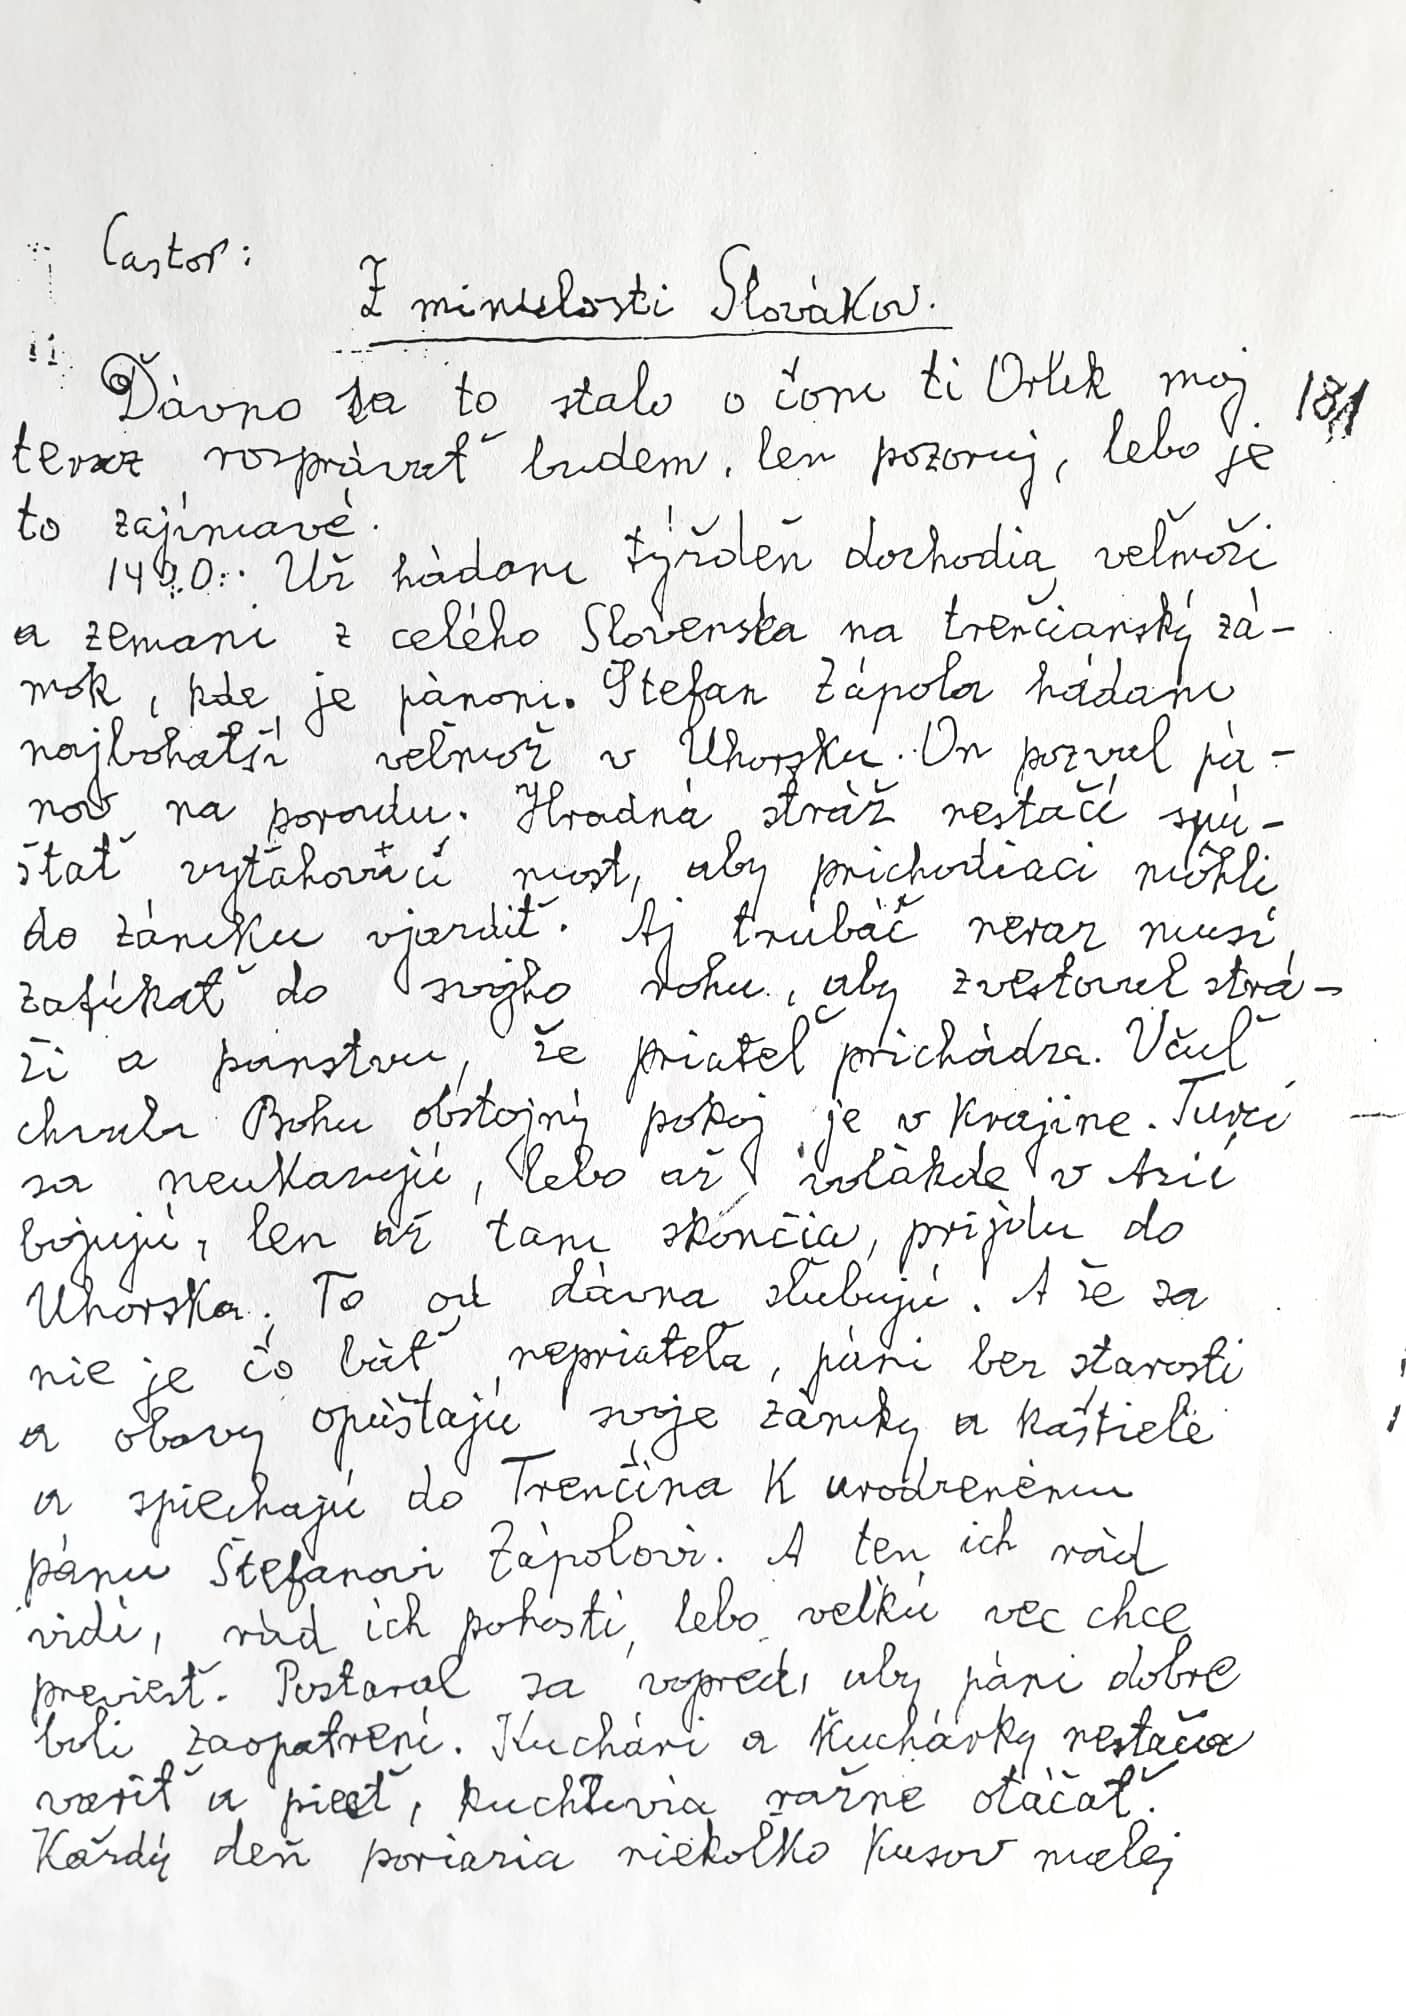 Castor:
Z minulosti Slovákov.
Dávno sa to stalo o čom ti Orlík moj 181
teraz rozprávať budem, len pozoruj, lebo je
to zajímavé.
1490. Už hádam týždeň dochodia veľmoži
a zemani z celého Slovenska na trenčianský zá-
mok, kde je pánom. Štefan Zápola hádam
najbohatší veľmož v Uhorsku. On pozval pá-
nov na poradu. Hradná stráž nestačí spú-
šťať vyťahovací most, aby prichodiaci môhli
do zámku vjazdiť. Aj trubáč neraz musí
zafúkať do svojho rohu, aby zvestoval strá-
ži a panstvu, že priateľ prichádza. Včuľ
chvala Bohu obstojný pokoj je v krajine. Turci
sa neukazujú, lebo až voľákde v Azií
bojujú, len až tam skončia, prijdu do
Uhorska. To od dávna sľubujú. A že sa
nie je čo báť nepriateľa, páni bez starosti
a obavy opúšťajú svoje zámky a kaštiele
a spiechajú do Trenčína k urodzenému
pánu Štefanovi Zápolovi. A ten ich rád
vidí, rád ich pohostí, lebo veľkú vec chce
previesť. Postaral sa vopred, aby páni dobre
boli zaopatrení. Kuchári a kuchárky nestačia
variť a piecť, kuchtovia ražne otáčať.
Každý deň poriazia niekoľko kusov malej